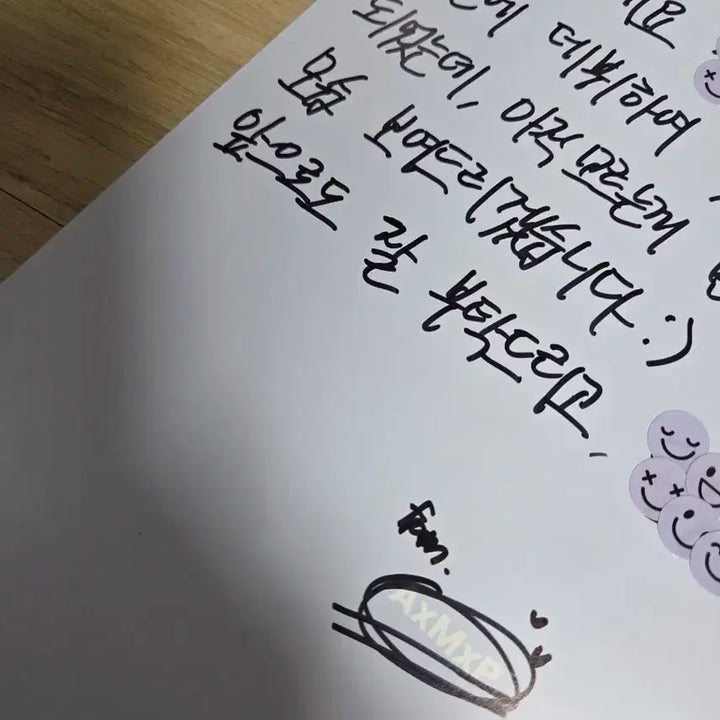 요
에 데뷔하게
되었는데, 아직 모르는게
모습 보여드리겠습니다 :)
앞으로도 잘 부탁드리고,
from.
AxMxP